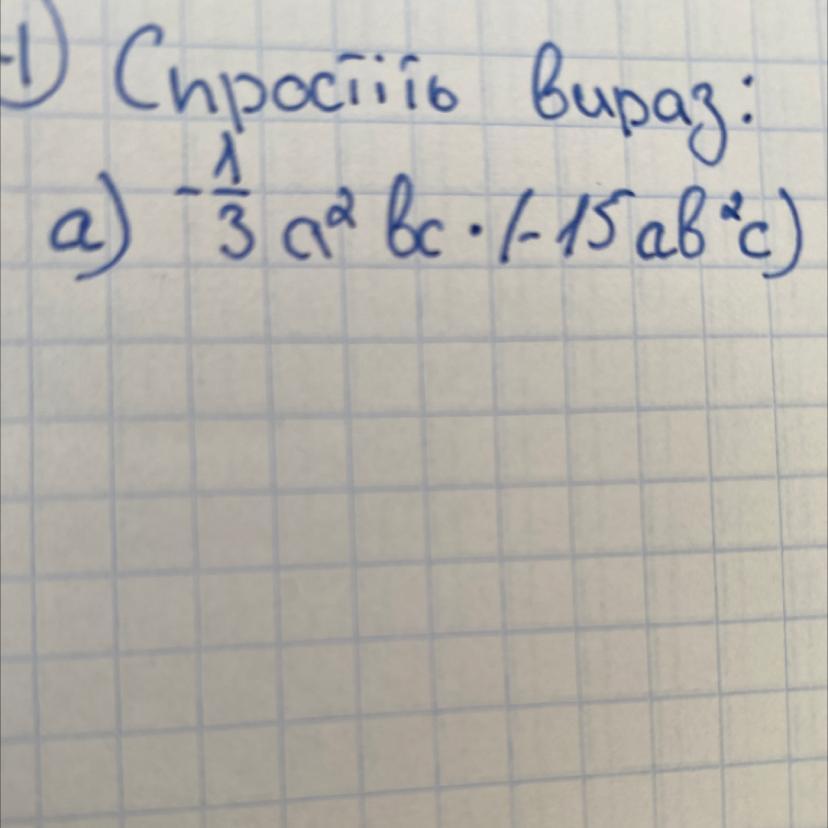 1) Спростіть вираз:
а) -1/3 a² bc · (-15ab²c)